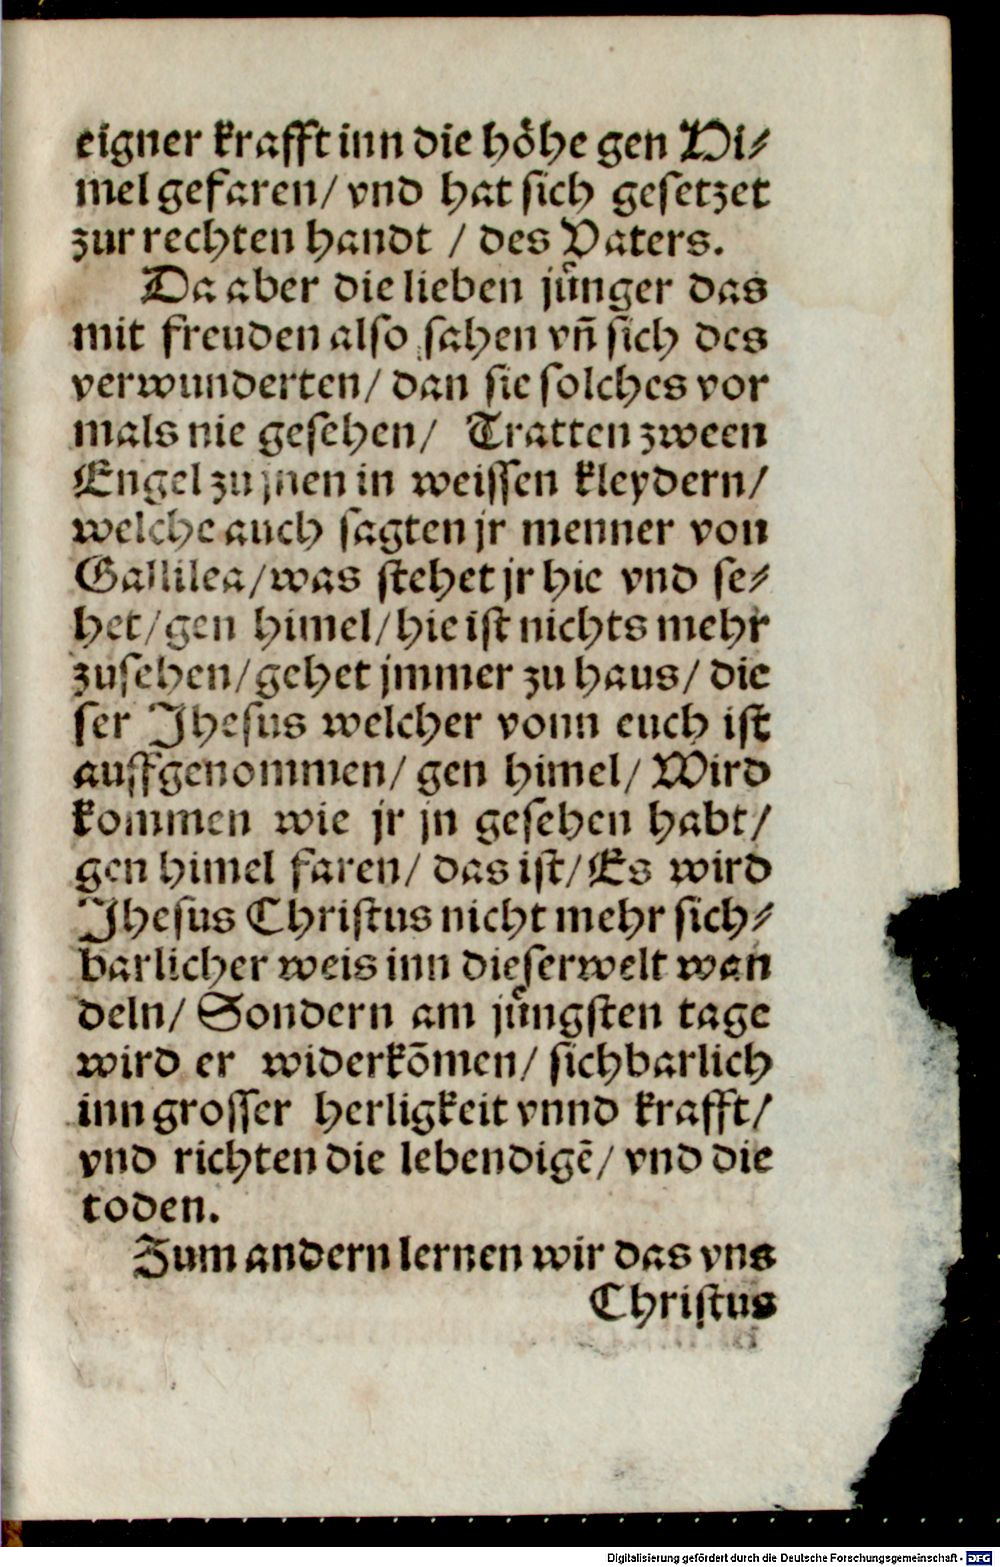 eigner krafft inn die hoͤhe gen Hi⸗
mel gefaren/ vnd hat sich gesetzet
zur rechten handt / des Vaters.
Da aber die lieben juͤnger das
mit freuden also sahen vñ sich des
verwunderten/ dan sie solches vor
mals nie gesehen/ Tratten zween
Engel zu jnen in weissen kleydern/
welche auch sagten jr menner von
Gallilea/was stehet jr hie vnd se⸗
het/gen himel/hie ist nichts mehr
zusehen/gehet jmmer zu haus/ die
ser Jhesus welcher vonn euch ist
auffgenommen/ gen himel/ Wird
kommen wie jr jn gesehen habt/
gen himel faren/ das ist/ Es wird
Jhesus Christus nicht mehr sich⸗
barlicher weis inn dieserwelt wan
deln/ Sondern am juͤngsten tage
wird er widerkõmen/ sichbarlich
inn grosser herligkeit vnnd krafft/
vnd richten die lebendigẽ/ vnd die
toden.
Zum andern lernen wir das vns
Christus
Digitalisierung gefördert durch die Deutsche Forschungsgemeinschaft - DFG